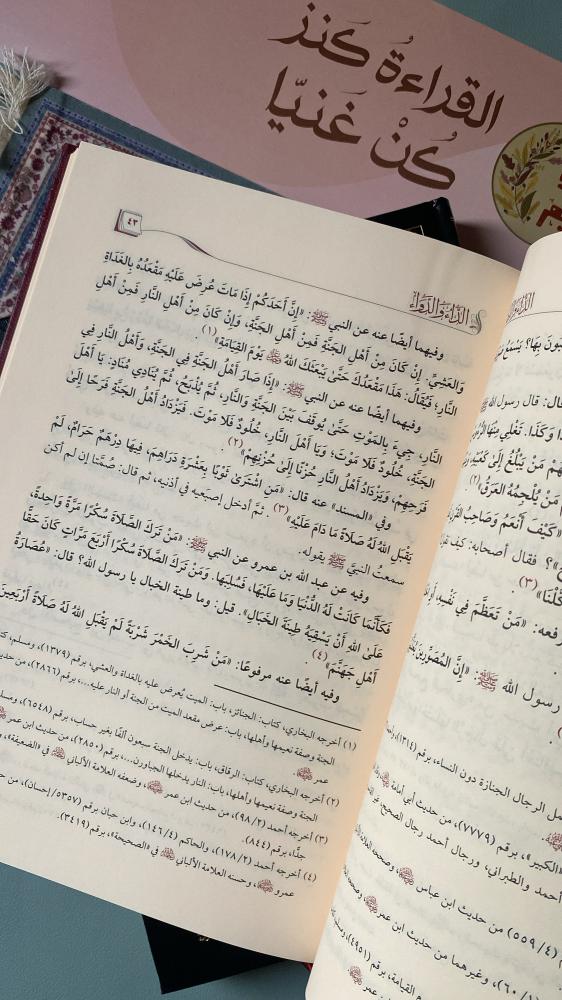 القراءة كنز
كُنْ غَنيّا
٤٣
الداء والدواء
وفيهما أيضًا عنه عن النبي ﷺ: «إِنَّ أَحَدَكُمْ إِذَا مَاتَ عُرِضَ عَلَيْهِ مَقْعَدُهُ بِالغَدَاةِ
وَالعَشِيِّ: إِنْ كَانَ مِنْ أَهْلِ الجَنَّةِ فَمِنْ أَهْلِ الجَنَّةِ، وَإِنْ كَانَ مِنْ أَهْلِ النَّارِ فَمِنْ أَهْلِ
النَّارِ؛ فَيُقَالُ: هَذَا مَقْعَدُكَ حَتَّى يَبْعَثَكَ اللهُ ﷻ يَوْمَ القِيَامَةِ»(١).
وفيهما أيضا عنه عن النبي ﷺ: «إِذَا صَارَ أَهْلُ الجَنَّةِ فِي الجَنَّةِ، وَأَهْلُ النَّارِ فِي
النَّارِ، جِيءَ بِالمَوْتِ حَتَّى يُوقَفَ بَيْنَ الجَنَّةِ وَالنَّارِ، ثُمَّ يُذْبَحُ، ثُمَّ يُنَادِي مُنَادٍ: يَا أَهْلَ
الجَنَّةِ، خُلُودٌ فَلَا مَوْتَ؛ وَيَا أَهْلَ النَّارِ، خُلُودٌ فَلَا مَوْتَ. فَيَزْدَادُ أَهْلُ الجَنَّةِ فَرَحًا إِلَى
فَرَحِهِمْ، وَيَزْدَادُ أَهْلُ النَّارِ حُزْنًا إِلَى حُزْنِهِمْ»(٢).
وفي «المسند» عنه قال: «مَنِ اشْتَرَى ثَوْبًا بِعَشْرَةِ دَرَاهِمَ، فِيهَا دِرْهَمٌ حَرَامٌ، لَمْ
يَقْبَلِ اللهُ لَهُ صَلَاةً مَا دَامَ عَلَيْهِ»(٣). ثمَّ أدخل إصبَعيه في أذنيه، ثم قال: صُمَّتا إن لم أكن
سمعتُ النبيَّ ﷺ يقوله.
وفيه عن عبد الله بن عمرو عن النبي ﷺ: «مَنْ تَرَكَ الصَّلَاةَ سُكْرًا مَرَّةً وَاحِدةً،
فَكَأَنَّمَا كَانَتْ لَهُ الدُّنْيَا وَمَا عَلَيْهَا، فَسُلِبَهَا. وَمَنْ تَرَكَ الصَّلَاةَ سُكْرًا أَرْبَعَ مَرَّاتٍ كَانَ حَقًّا
عَلَى اللهِ أَنْ يَسْقِيَهُ طِينَةَ الخَبَالِ». قيل: وما طينة الخبال يا رسول الله؟ قال: «عُصَارَةُ
أَهْلِ جَهَنَّمَ»(٤).
وفيه أيضًا عنه مرفوعًا: «مَنْ شَرِبَ الخَمْرَ شَرْبَةً لَمْ يَقْبَلِ اللهُ لَهُ صَلَاةً أَرْبَعِينَ
(١) أخرجه البخاري، كتاب: الجنائز، باب: الميت يُعرض عليه بالغداة والعشي، برقم (١٣٧٩)، ومسلم،
الجنة وصفة نعيمها وأهلها، باب: عرض مقعد الميت من الجنة أو النار عليه...، برقم (٢٨٦٦)، من
عمر
(٢) أخرجه البخاري، كتاب: الرقاق، باب: يدخل الجنة سبعون ألفًا بغير حساب، برقم (٦٥٤٨)،
الجنة وصفة نعيمها وأهلها، باب: النار يدخلها الجبارون...، برقم (٢٨٥٠)، من حديث ابن عمر
(٣) أخرجه أحمد (٩٨/٢)، من حديث ابن عمر، وضعفه العلامة الألباني في «الضعيفة»،
جدًّا، برقم (٨٤٤).
(٤) أخرجه أحمد (١٧٨/٢)، والحاكم (١٤٦/٤)، وابن حبان برقم (٥٣٥٧/إحسان)، من
عمرو، وحسنه العلامة الألباني في «الصحيحة»، برقم (٣٤١٩).
قال: قال رسول الله
«كَيْفَ أَنْعَمُ وَصَاحِبُ
؟ فقال أصحابه: كيف
«مَنْ تَعَظَّمَ فِي نَفْسِهِ، أَوِ
رسول الله ﷺ: «إِنَّ المُصَوِّرِينَ
الرجال الجنازة دون النساء، برقم (١٣١٤)
«الكبير»، برقم (٧٧٧٩)، من حديث أبي أمامة
أحمد والطبراني، ورجال أحمد رجال الصحيح
(٤/ ٥٥٩) من حديث ابن عباس
وغيرهما من حديث ابن عمر
القيامة، برقم (٤٩٥١)